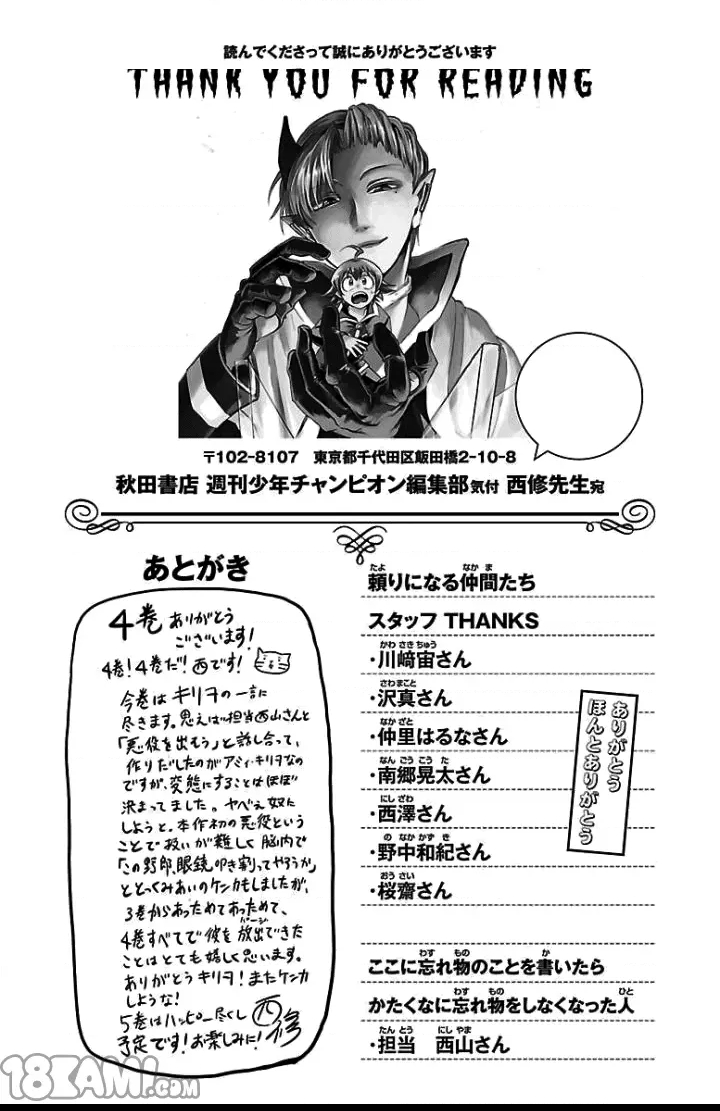 読んでくださって誠にありがとうございます
THANK YOU FOR READING
〒102-8107 東京都千代田区飯田橋2-10-8
秋田書店 週刊少年チャンピオン編集部気付 西修先生宛
あとがき
4巻ありがとう
ございます!
4巻!4巻だ!西です!
今巻はキリヲの一言に
尽きます。思えば担当西山さんと
「悪役を出もう」と話し合って、
作りだしたのがアミィ・キリヲなの
ですが、変態にすることはほぼ
決まってました。ヤベぇ奴に
しようと。本作初の悪役という
ことで扱いが難しく脳内で
「この野郎、眼鏡叩き割ってやろうか」
ととっくみあいのケンカもしましたが、
3巻からあっためてあっためて、
4巻すべてで彼を放出できた
ことはとても嬉しく思います。
ありがとうキリヲ!またケンカ
しような!
5巻はハッピー尽くし
予定です!お楽しみに!
西修
頼りになる仲間たち
スタッフ THANKS
・川﨑宙さん
・沢真さん
・仲里はるなさん
・南郷晃太さん
・西澤さん
・野中和紀さん
・桜齋さん
ありがとう
ほんとありがとう
ここに忘れ物のことを書いたら
かたくなに忘れ物をしなくなった人
・担当 西山さん
18KAMI.COM